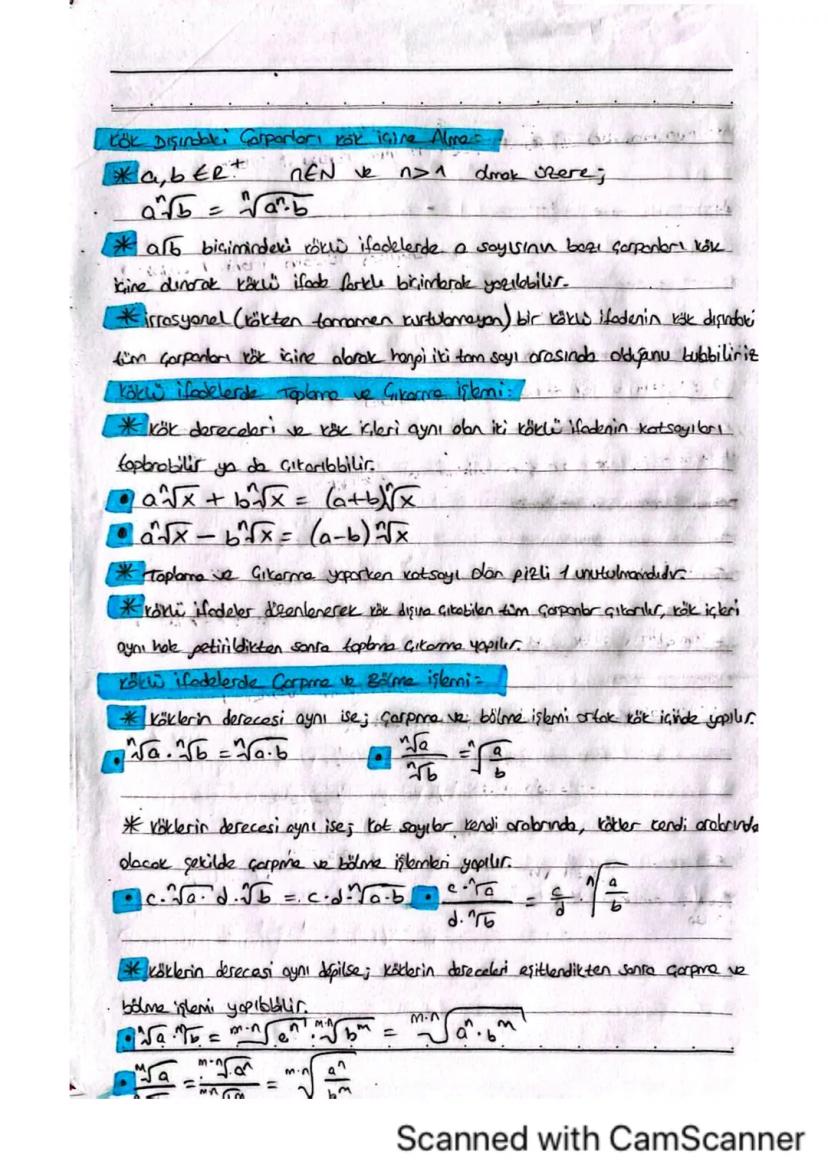 Kök Dışındaki Çarpanları Kök İçine Alma:
* a, b ∈ R⁺ n∈N ve n>1 olmak üzere;
a ⁿ√b = ⁿ√aⁿ·b
* a√b biçimindeki köklü ifadelerde a sayısının bazı çarpanları kök
içine alınarak köklü ifade farklı biçimlerde yazılabilir.
* İrrasyonel (kökten tamamen kurtulamayan) bir köklü ifadenin kök dışındaki
tüm çarpanları kök içine alarak hangi iki tam sayı arasında olduğunu bulabiliriz
Köklü ifadelerde Toplama ve Çıkarma İşlemi:
* Kök dereceleri ve kök içleri aynı olan iki köklü ifadenin katsayıları
toplanabilir ya da çıkarılabilir.
• a ⁿ√x + b ⁿ√x = (a+b) ⁿ√x
• a ⁿ√x − b ⁿ√x = (a-b) ⁿ√x
* Toplama ve Çıkarma yaparken katsayı olan gizli 1 unutulmamalıdır.
* Köklü ifadeler düzenlenerek kök dışına çıkabilen tüm çarpanlar çıkarılır, kök içleri
aynı hale getirildikten sonra toplama çıkarma yapılır.
Köklü ifadelerde Çarpma ve Bölme işlemi:
* Köklerin derecesi aynı ise; çarpma ve bölme işlemi ortak kök içinde yapılır.
• ⁿ√a . ⁿ√b = ⁿ√a·b • ⁿ√a / ⁿ√b = ⁿ√a/b
* Köklerin derecesi aynı ise; kat sayılar kendi arabrında, kökler kendi arabrında
olacak şekilde çarpma ve bölme işlemleri yapılır.
• c·ⁿ√a · d·ⁿ√b = c·d·ⁿ√a·b • c·ⁿ√a / d·ⁿ√b = c/d · ⁿ√a/b
* Köklerin derecesi aynı değilse; köklerin dereceleri eşitlendikten sonra çarpma ve
bölme işlemi yapılabilir.
• ᵐ√a · ⁿ√b = ᵐ·ⁿ√aⁿ · ᵐ·ⁿ√bᵐ = ᵐ·ⁿ√aⁿ·bᵐ
• ᵐ√a = ᵐ·ⁿ√aⁿ = ᵐ·ⁿ√aⁿ/bᵐ
Scanned with CamScanner